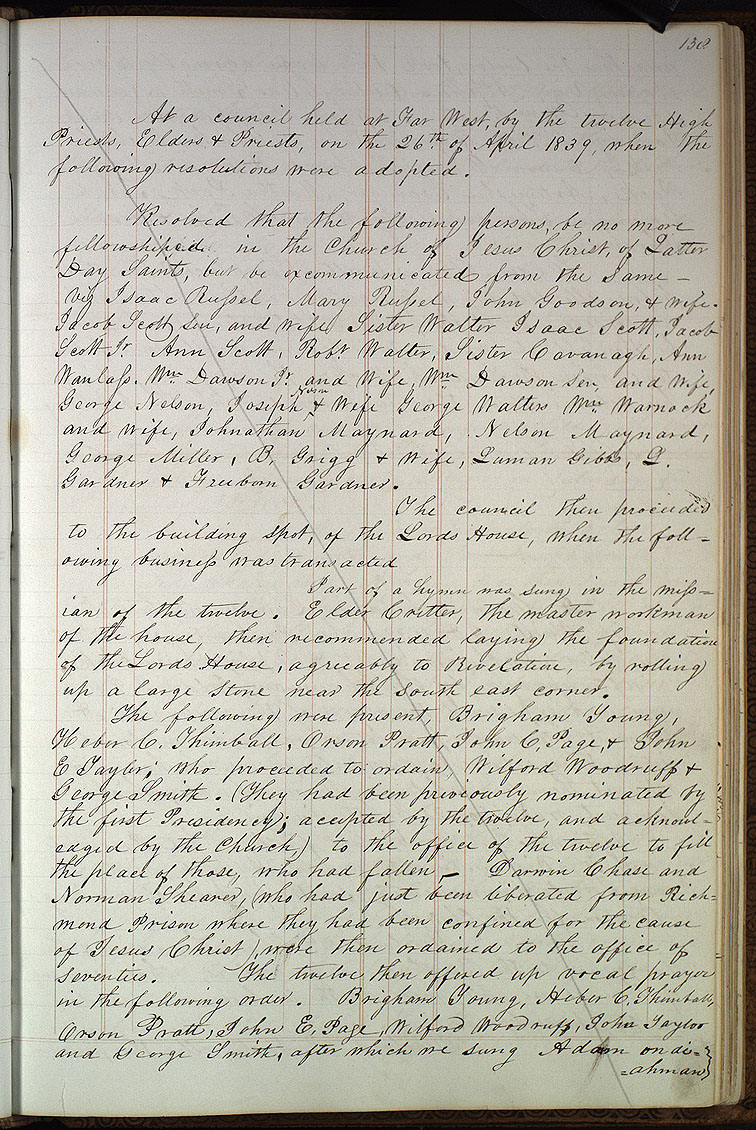 138
At a council held at Far West, by the twelve High
Priests, Elders & Priests, on the 26th of April 1839, when the
following resolutions were adopted.
Resolved that the following persons, be no more
fellowshiped in the Church of Jesus Christ, of Latter
Day Saints, but be excommunicated from the same—
viz Isaac Russel, Mary Russel, John Goodson, & wife.
Jacob Scott Sen, and wife, Sister Walter Isaac Scott, Jacob
Scott Jr. Ann Scott, Robt Walter, Sister Cavanagh, Ann
Wanlass. Wm Dawson Jr. and Wife, Wm Dawson Sen, and Wife,
George Nelson, Joseph Nelson & Wife George Walters Wm. Warnock
and wife, Johnathan Maynard, Nelson Maynard,
George Miller, B, Grigg & wife, Luman Gibbs, L.
Gardner & Freeborn Gardner.
The council then proceeded
to the building spot, of the Lords House, when the foll-
owing business was transacted
Part of a hymn was sung in the miss-
ian of the twelve. Elder Critter, the master workman
of the house then recommended laying the foundation
of the Lords House, agreeably to Revelation, by rolling
up a large stone near the south east corner.
The following were present, Brigham Young,
Heber C. Thimball, Orson Pratt, John E, Page, & John
E Tayler; who proceeded to ordain Wilford Woodruff &
George Smith. (They had been previously nominated by
the first Presidency; accepted by the twelve, and acknowl-
edged by the Church,) to the office of the twelve to fill
the place of those, who had fallen— Darwin Chase and
Norman Shearer, (who had just been liberated from Rich-
mond Prison where they had been confined for the cause
of Jesus Christ) were then ordained to the office of
seventies. The twelve then offered up vocal prayer
in the following order. Brigham Young, Heber C. Thimball,
Orson Pratt, John E. Page, Wilford Woodruff, John Taylor
and George Smith, after which we sung Adam on di-
-ahman